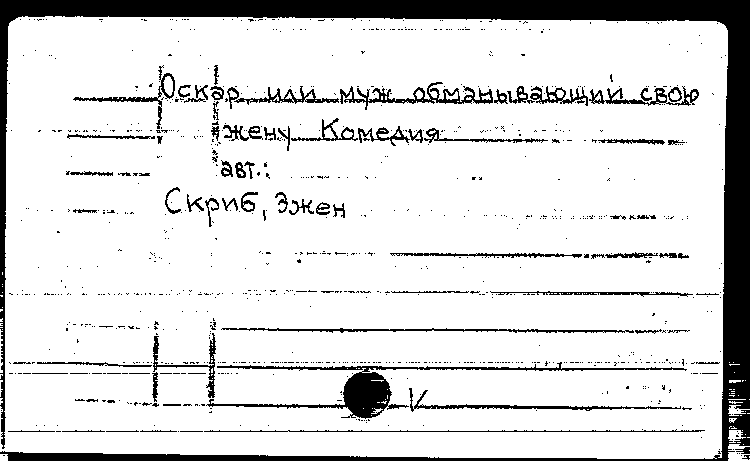 Оскар, или муж обманывающий свою
жену Комедия
авт.:
Скриб, Эжен
V